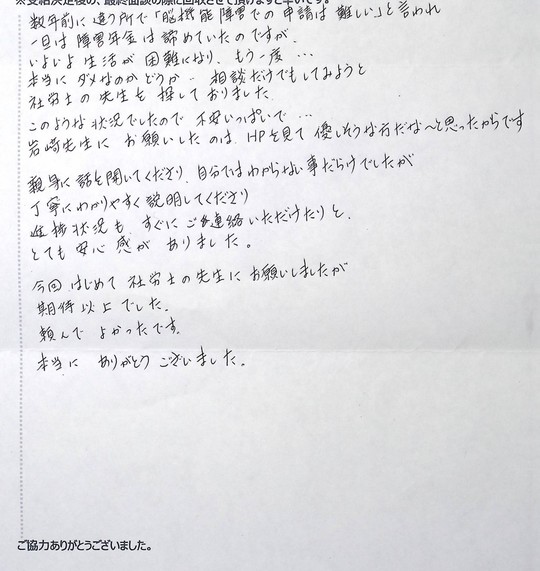 ※受給決定後の、最終面談の際に回収させて頂けますと幸いです。
数年前に違う所で「脳機能障害での申請は難しい」と言われ
一旦は障害年金は諦めていたのですが、
いよいよ生活が困難になり、もう一度…
本当にダメなのかどうか… 相談だけでもしてみようと
社労士の先生を探しておりました。
このような状況でしたので不安いっぱいで…
岩崎先生にお願いしたのは、HPを見て優しそうな方だな〜と思ったからです
親身に話を聞いてくださり、自分ではわからない事だらけでしたが
丁寧にわかりやすく説明してくださり
進捗状況も、すぐにご連絡いただけたりと、
とても安心感がありました。
今回はじめて社労士の先生にお願いしましたが
期待以上でした。
頼んでよかったです。
本当にありがとうございました。
ご協力ありがとうございました。